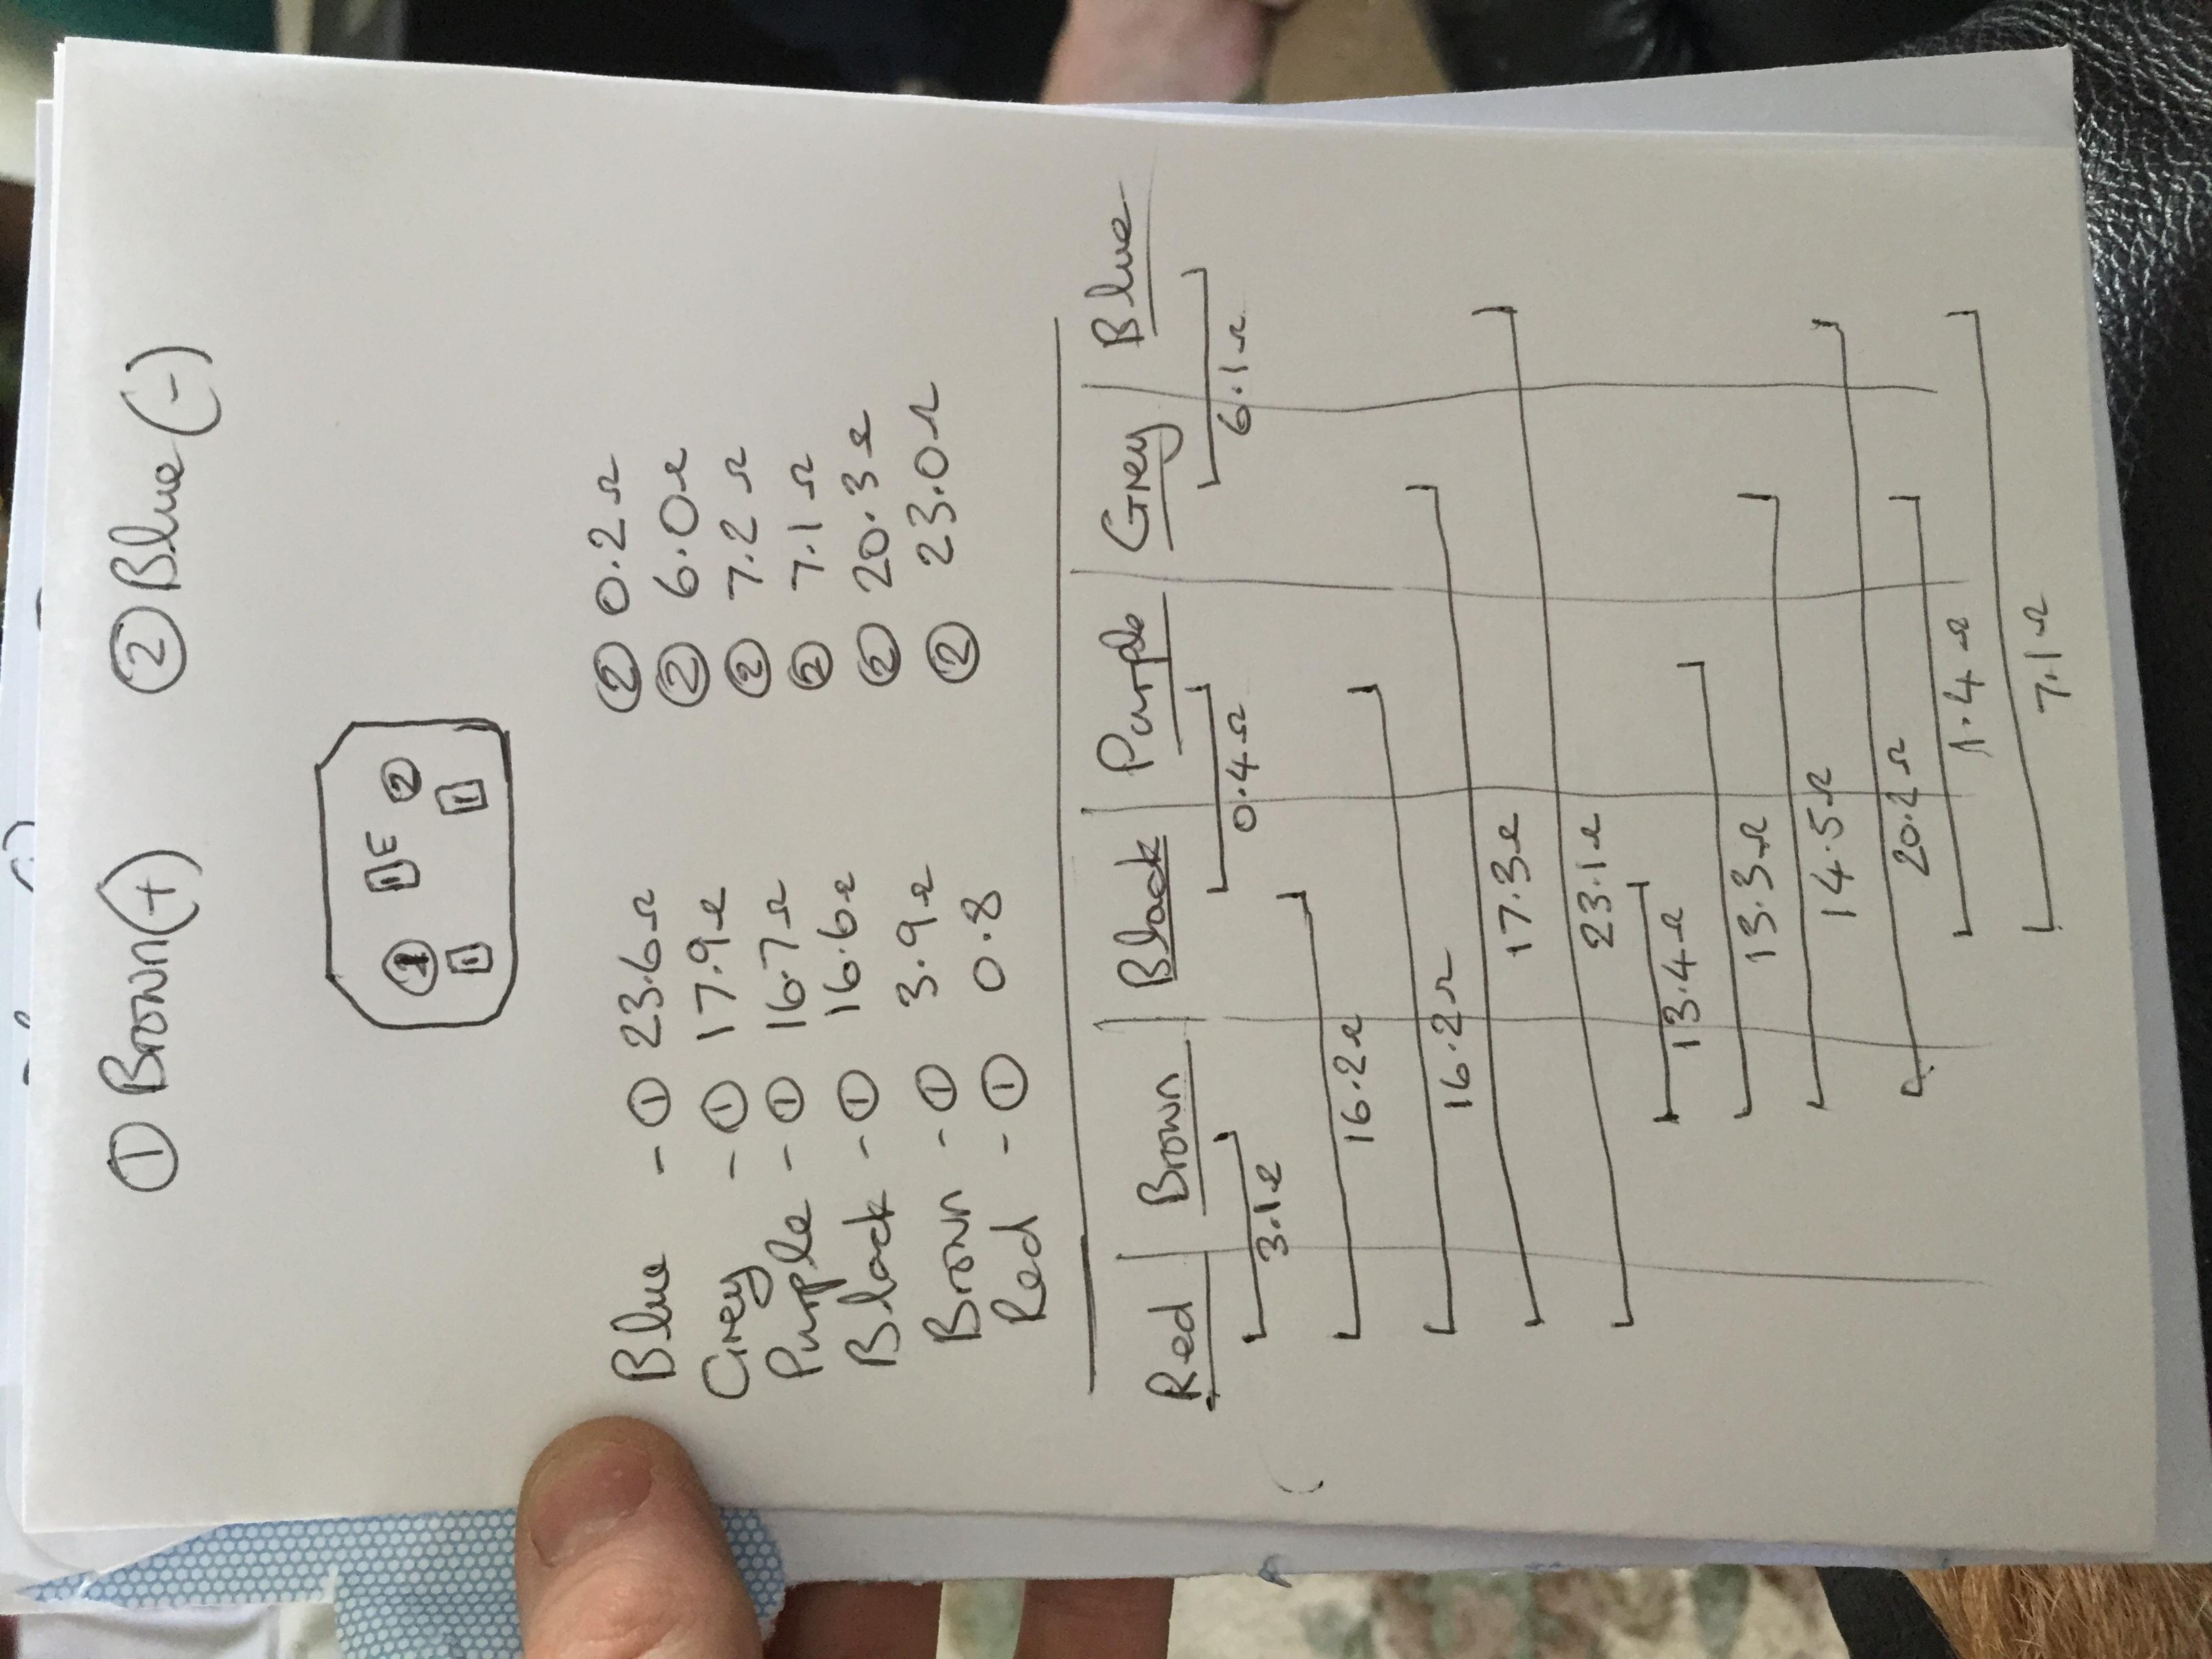 ① Brown (+) ② Blue (-)
① E ②
Blue - ① 23.6Ω ② 0.2Ω
Grey - ① 17.9Ω ② 6.0Ω
Purple - ① 16.7Ω ② 7.2Ω
Black - ① 16.6Ω ② 7.1Ω
Brown - ① 3.9Ω ② 20.3Ω
Red - ① 0.8 ② 23.0Ω
Red | Brown | Black | Purple | Grey | Blue
3.1Ω 0.4Ω 6.1Ω
16.2Ω
16.2Ω
17.3Ω
23.1Ω
13.4Ω
13.3Ω
14.5Ω
20.2Ω
1.4Ω
7.1Ω